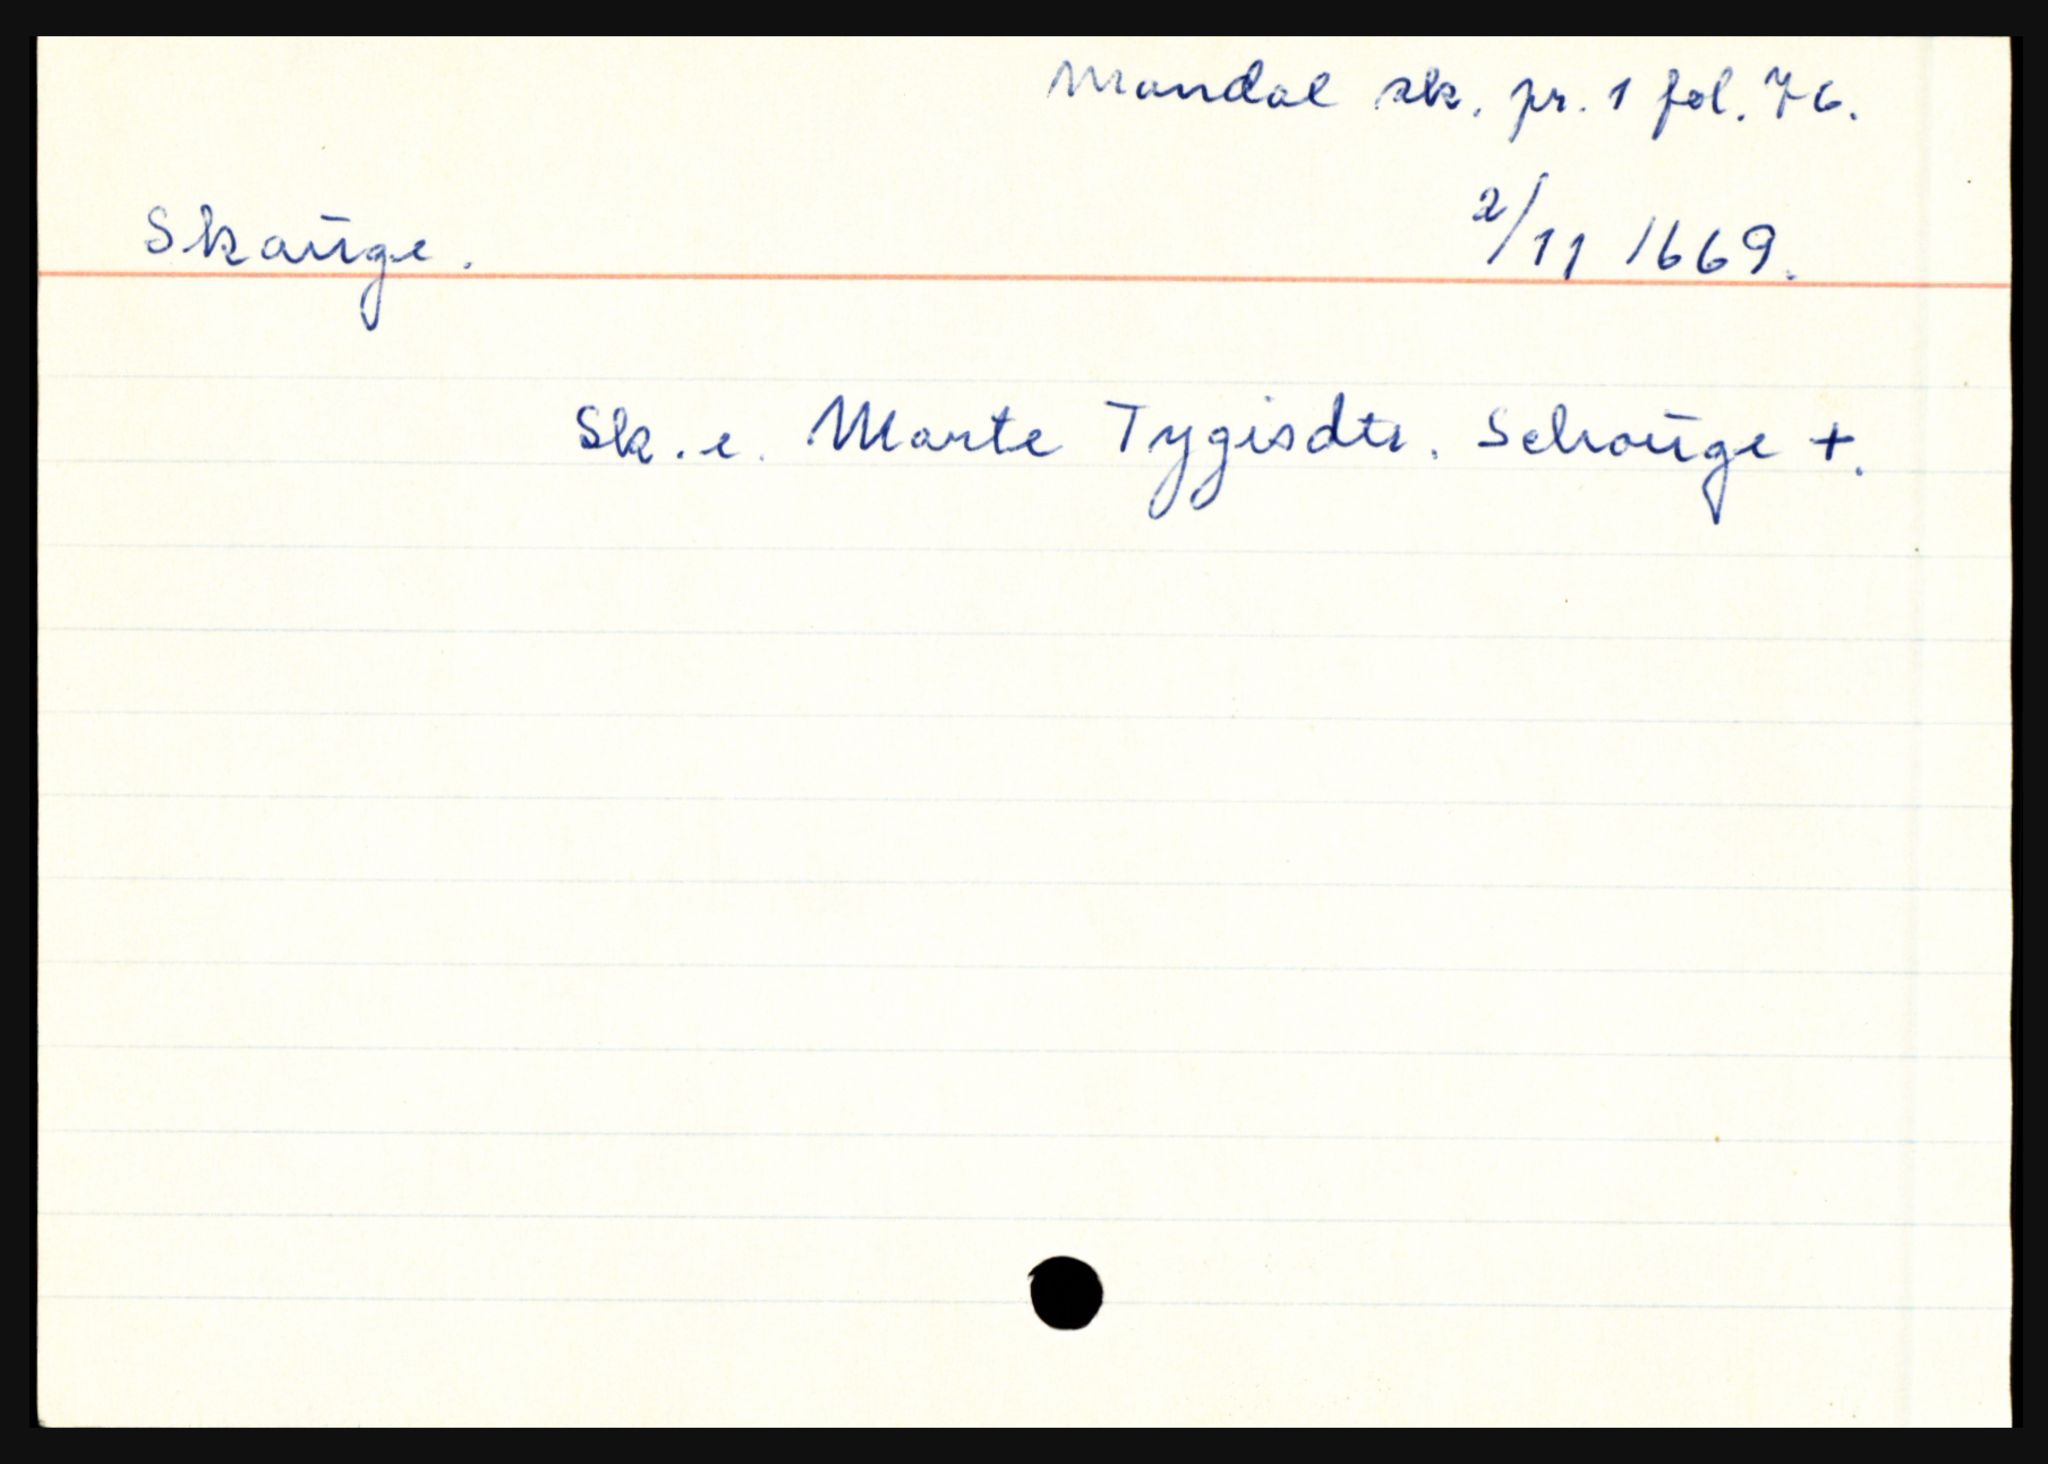 Mandal sk. pr. 1 fol. 76.
Skauge.
2/11 1669.
Sk. e. Marte Tygisdtr. Schauge +.